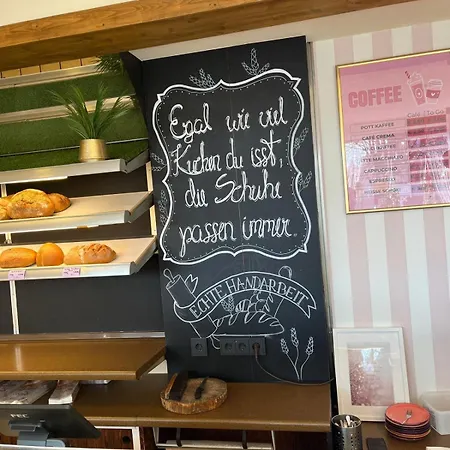 Egal wie viel
Kuchen du isst,
die Schuhe
passen immer.
ECHTE HANDARBEIT
COFFEE
POTT KAFFEE
CAFE CREMA
LATTE MACCHIATO
CAPPUCCINO
ESPRESSO